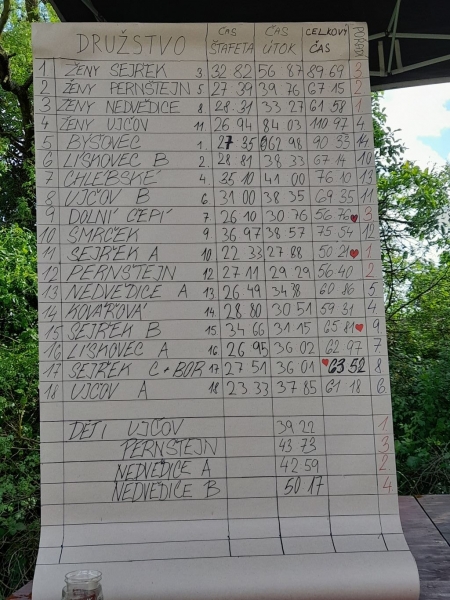 DRUŽSTVO ČAS ŠTAFETA ČAS ÚTOK CELKOVÝ ČAS POŘADÍ
1 ŽENY SEJŘEK 3 32 82 56 87 89 69 3
2 ŽENY PERNŠTEJN 5 27 39 39 76 67 15 2
3 ŽENY NEDVĚDICE 8 28 31 33 27 61 58 1
4 ŽENY UJČOV 11 26 94 84 03 110 97 4
5 BYŠOVEC 1. 27 35 62 98 90 33 14
6 LÍSKOVEC B 2. 28 81 38 33 67 14 10
7 CHLÉBSKÉ 4 35 10 41 00 76 10 13
8 UJČOV B 6 31 00 38 35 69 35 11
9 DOLNÍ ČEPÍ 7. 26 10 30 76 56 76 3
10 SMRČEK 9 36 97 38 57 75 54 12
11 SEJŘEK A 10 22 33 27 88 50 21 1
12 PERNŠTEJN 12 27 11 29 29 56 40 2
13 NEDVĚDICE A 13 26 49 34 38 60 86 5
14 KOVÁŘOVÁ 14. 28 80 30 51 59 31 4
15 SEJŘEK B 15 34 66 31 15 65 81 9.
16 LÍSKOVEC A 16 26 95 36 02 62 97 7.
17 SEJŘEK C + BOR 17 27 51 36 01 63 52 8
18 UJČOV A 18 23 33 37 85 61 18 6.
DĚTI UJČOV 39 22 1
PERNŠTEJN 43 73 3
NEDVĚDICE A 42 59 2
NEDVĚDICE B 50 17 4